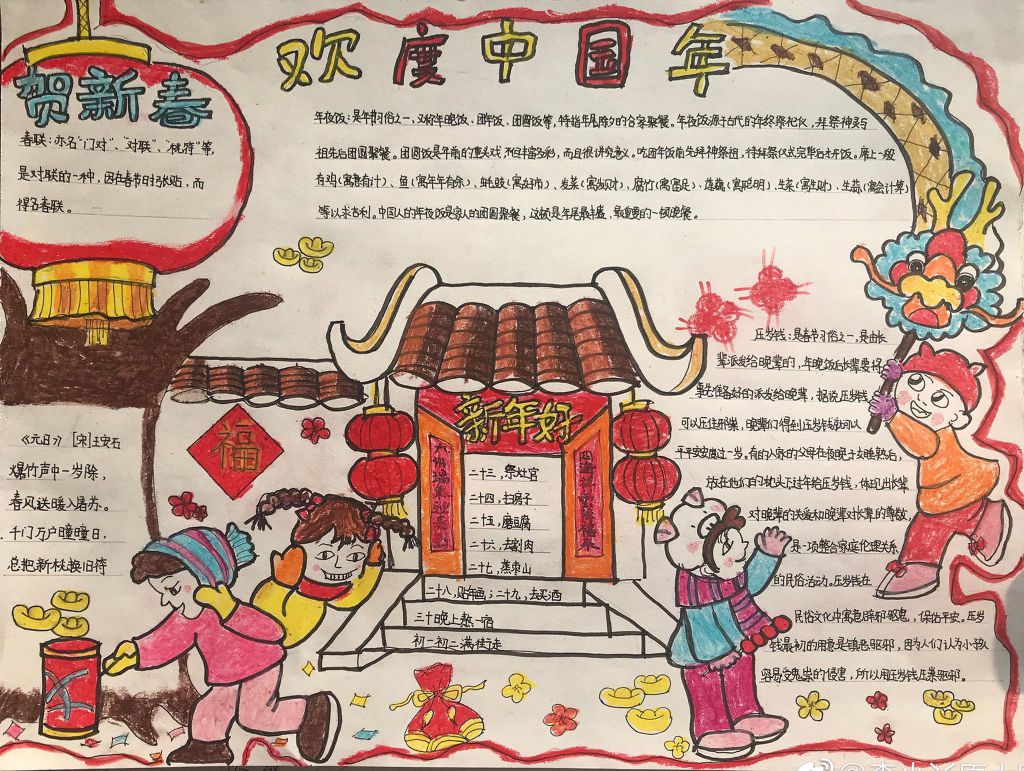 欢度中国年
贺新春
春联：亦名"门对"、"对联"、"桃符"等，
是对联的一种，因在春节时张贴，而
得名春联。
年夜饭：是年节习俗之一，又称年晚饭、团年饭、团圆饭等，特指年尾除夕的合家聚餐。年夜饭源于古代的年终祭祀仪，拜祭神灵与
祖先后团圆聚餐。团圆饭是年前的重头戏，不但丰富多彩，而且很讲究意义。吃团年饭前先拜神祭祖，待拜祭仪式完毕后才开饭。席上一般
有鸡（寓意有计）、鱼（寓年年有余）、蚝豉（寓好市）、发菜（寓发财）、腐竹（寓富足）、莲藕（寓聪明）、生菜（寓生财）、生蒜（寓会计算）
等以求吉利。中国人的年夜饭是家人的团圆聚餐，这顿是年尾最丰盛、最重要的一顿晚餐。
压岁钱：是春节习俗之一，是由长
辈派发给晚辈的，年晚饭后长辈要将
事先准备好的派发给晚辈，据说压岁钱
可以压住邪祟，晚辈们得到压岁钱就可以
平平安安度过一岁。有的人家的父母在夜晚子女睡熟后，
放在他们的枕头下过年给压岁钱，体现出长辈
对晚辈的关爱和晚辈对长辈的尊敬，
是一项整合家庭伦理关系
的民俗活动。压岁钱在
民俗文化中寓意辟邪驱鬼，保佑平安。压岁
钱最初的用意是镇恶驱邪，因为人们认为小孩
容易受鬼祟的侵害，所以用压岁钱压祟驱邪。
福
新年好
二十三，祭灶官
二十四，扫房子
二十五，磨豆腐
二十六，去割肉
二十七，蒸枣山
二十八，贴年画；二十九，去买酒
三十晚上熬一宿
初一初二满街走
《元日》 [宋]王安石
爆竹声中一岁除，
春风送暖入屠苏。
千门万户曈曈日，
总把新桃换旧符